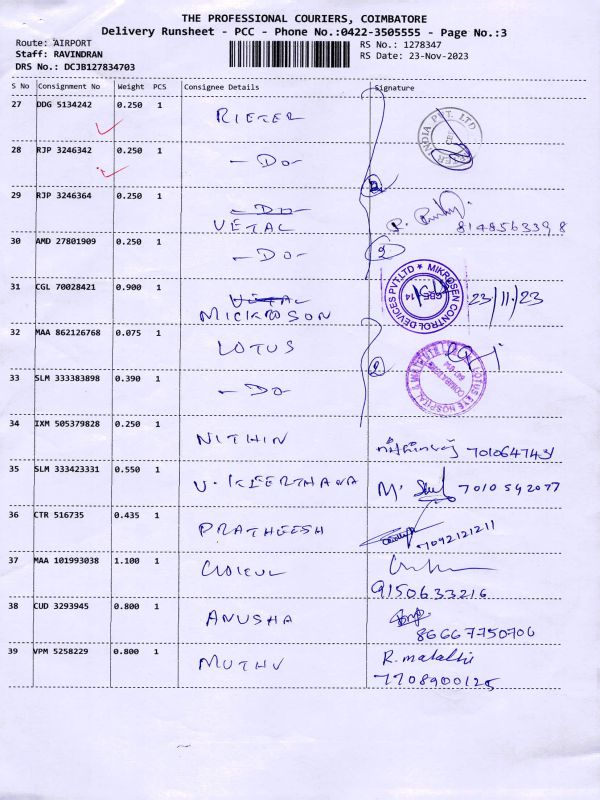 THE PROFESSIONAL COURIERS, COIMBATORE
Delivery Runsheet - PCC - Phone No.:0422-3505555 - Page No.:3
Route: AIRPORT
Staff: RAVINDRAN
DRS No.: DCJB127834703
RS No.: 1278347
RS Date: 23-Nov-2023
S No Consignment No Weight PCS Consignee Details Signature
27 DDG 5134242 0.250 1 RIETER
28 RJP 3246342 0.250 1 -DO-
2
29 RJP 3246364 0.250 1 -DO-
VETAL 8148563398
30 AMD 27801909 0.250 1 -DO- 2
31 CGL 70028421 0.900 1 VETAL
MICKROSON MIKROSEN CONTROL DEVICES PVT.LTD CBE-14 23/11/23
32 MAA 862126768 0.075 1 LOTUS
33 SLM 333383898 0.390 1 -DO- 2 LOTUS EYE HOSPITAL
34 IXM 505379828 0.250 1 NITHIN 701064743
35 SLM 333423331 0.550 1 V. KEERTHANA M. 7010592077
36 CTR 516735 0.435 1 PRATHEESH 7092121211
37 MAA 101993038 1.100 1 GOKUL
9150633216
38 CUD 3293945 0.800 1 ANUSHA
86667750706
39 VPM 5258229 0.800 1 MUTHU R. malathi
7708900125